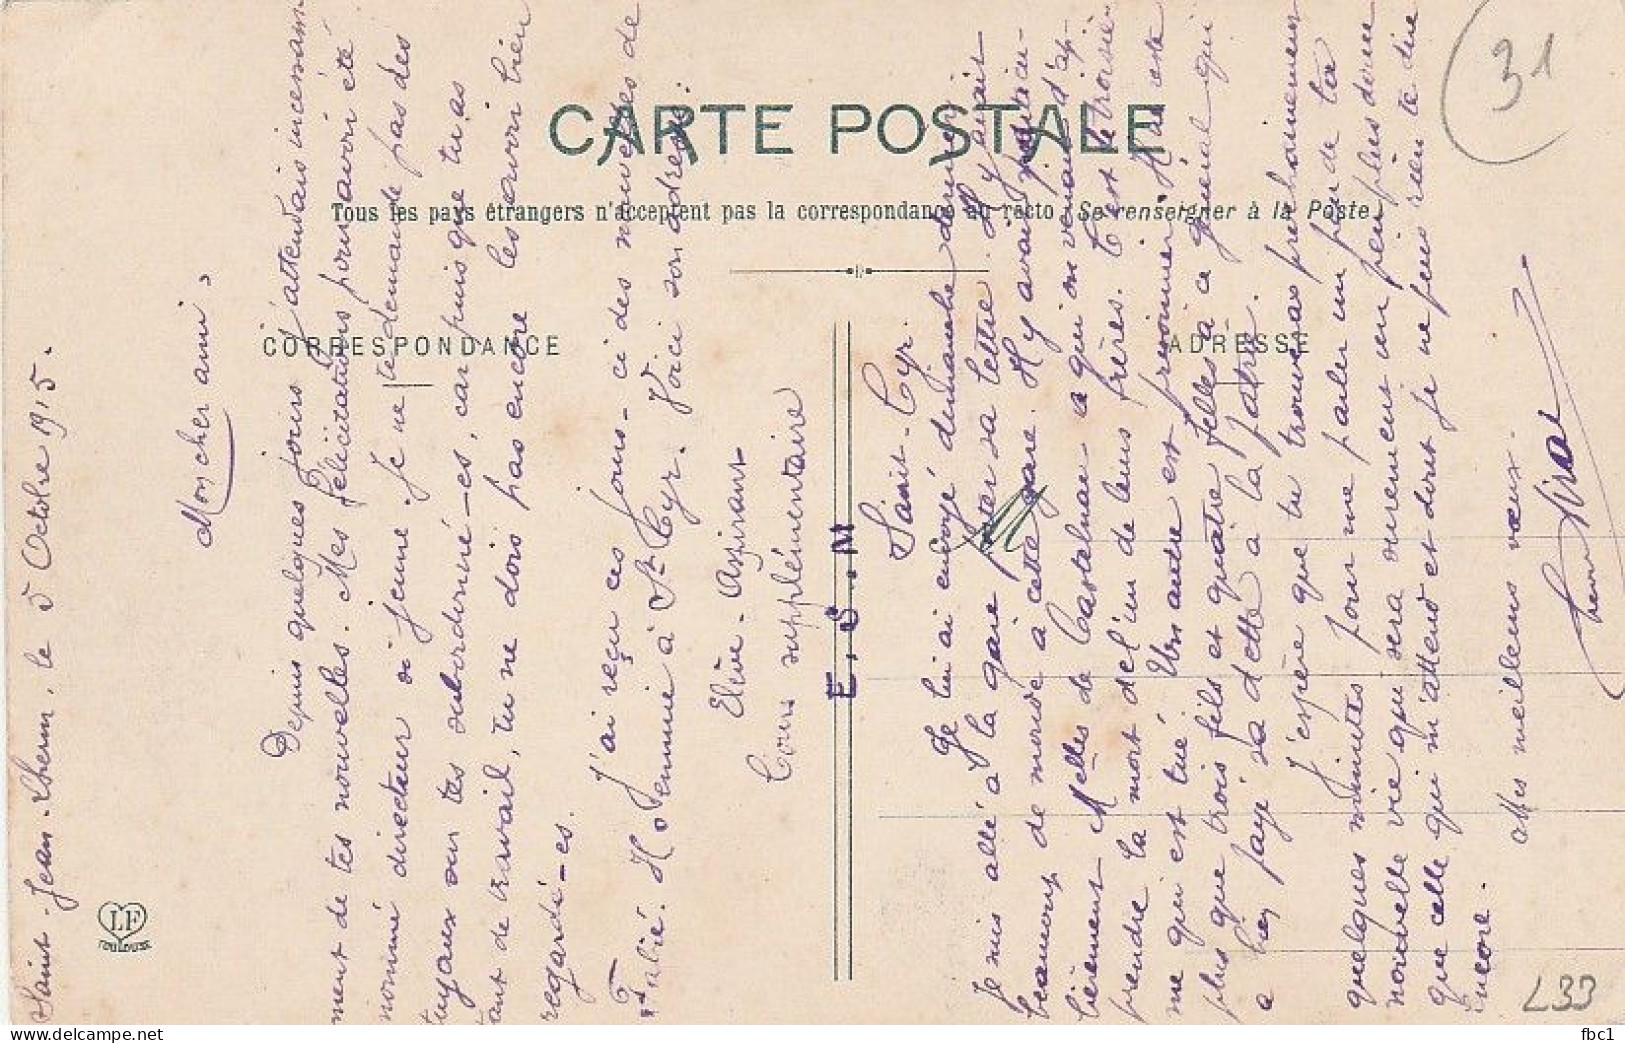 CARTE POSTALE
Tous les pays étrangers n'acceptent pas la correspondance au recto (Se renseigner à la Poste)
CORRESPONDANCE
ADRESSE
LF
TOULOUSE
31
L33
E.S.M
Saint-Jean-Lherm, le 5 Octobre 1915.
Mon cher ami,
Depuis quelques jours j'attendais incessam
ment de tes nouvelles. Mes félicitations pour avoir été
nommé directeur si jeune. Je ne te demande pas des
tuyaux ou tes subordonné-es, car puisque tu as
tant de travail, tu ne dois pas encore les avoir bien
regardé-es.
J'ai reçu ces jours-ci des nouvelles de
Talié. Homme à St Cyr. Voici son adresse:
Elève-Aspirant
Cours supplémentaire
Saint-Cyr.
Je lui ai envoyé dimanche dernier.
Je suis allé à la gare porter sa lettre. Il y avait
beaucoup de monde à cette gare. Il y avait particu-
lièrement Melles de Castelnau à qui on venait d'ap-
prendre la mort del'un de leurs frères. C'est le troisiè-
me qui est tué. Un autre est prisonnier. Il ne reste
plus que trois fils et quatre filles à ce général qui
a bien payé sa dette à la patrie.
J'espère que tu trouveras prochainement
quelques minutes pour me parler un peu de ta
nouvelle vie qui sera surement un peu plus douce
que celle qui m'attend et dont je ne puis rien te dire
encore.
Mes meilleurs vœux.